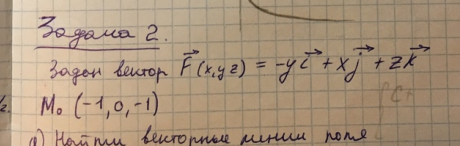 Задача 2.
Задан вектор F⃗(x,y z) = -yi⃗ + xj⃗ + zk⃗
M₀ (-1,0,-1)
а) Найти векторные линии поля